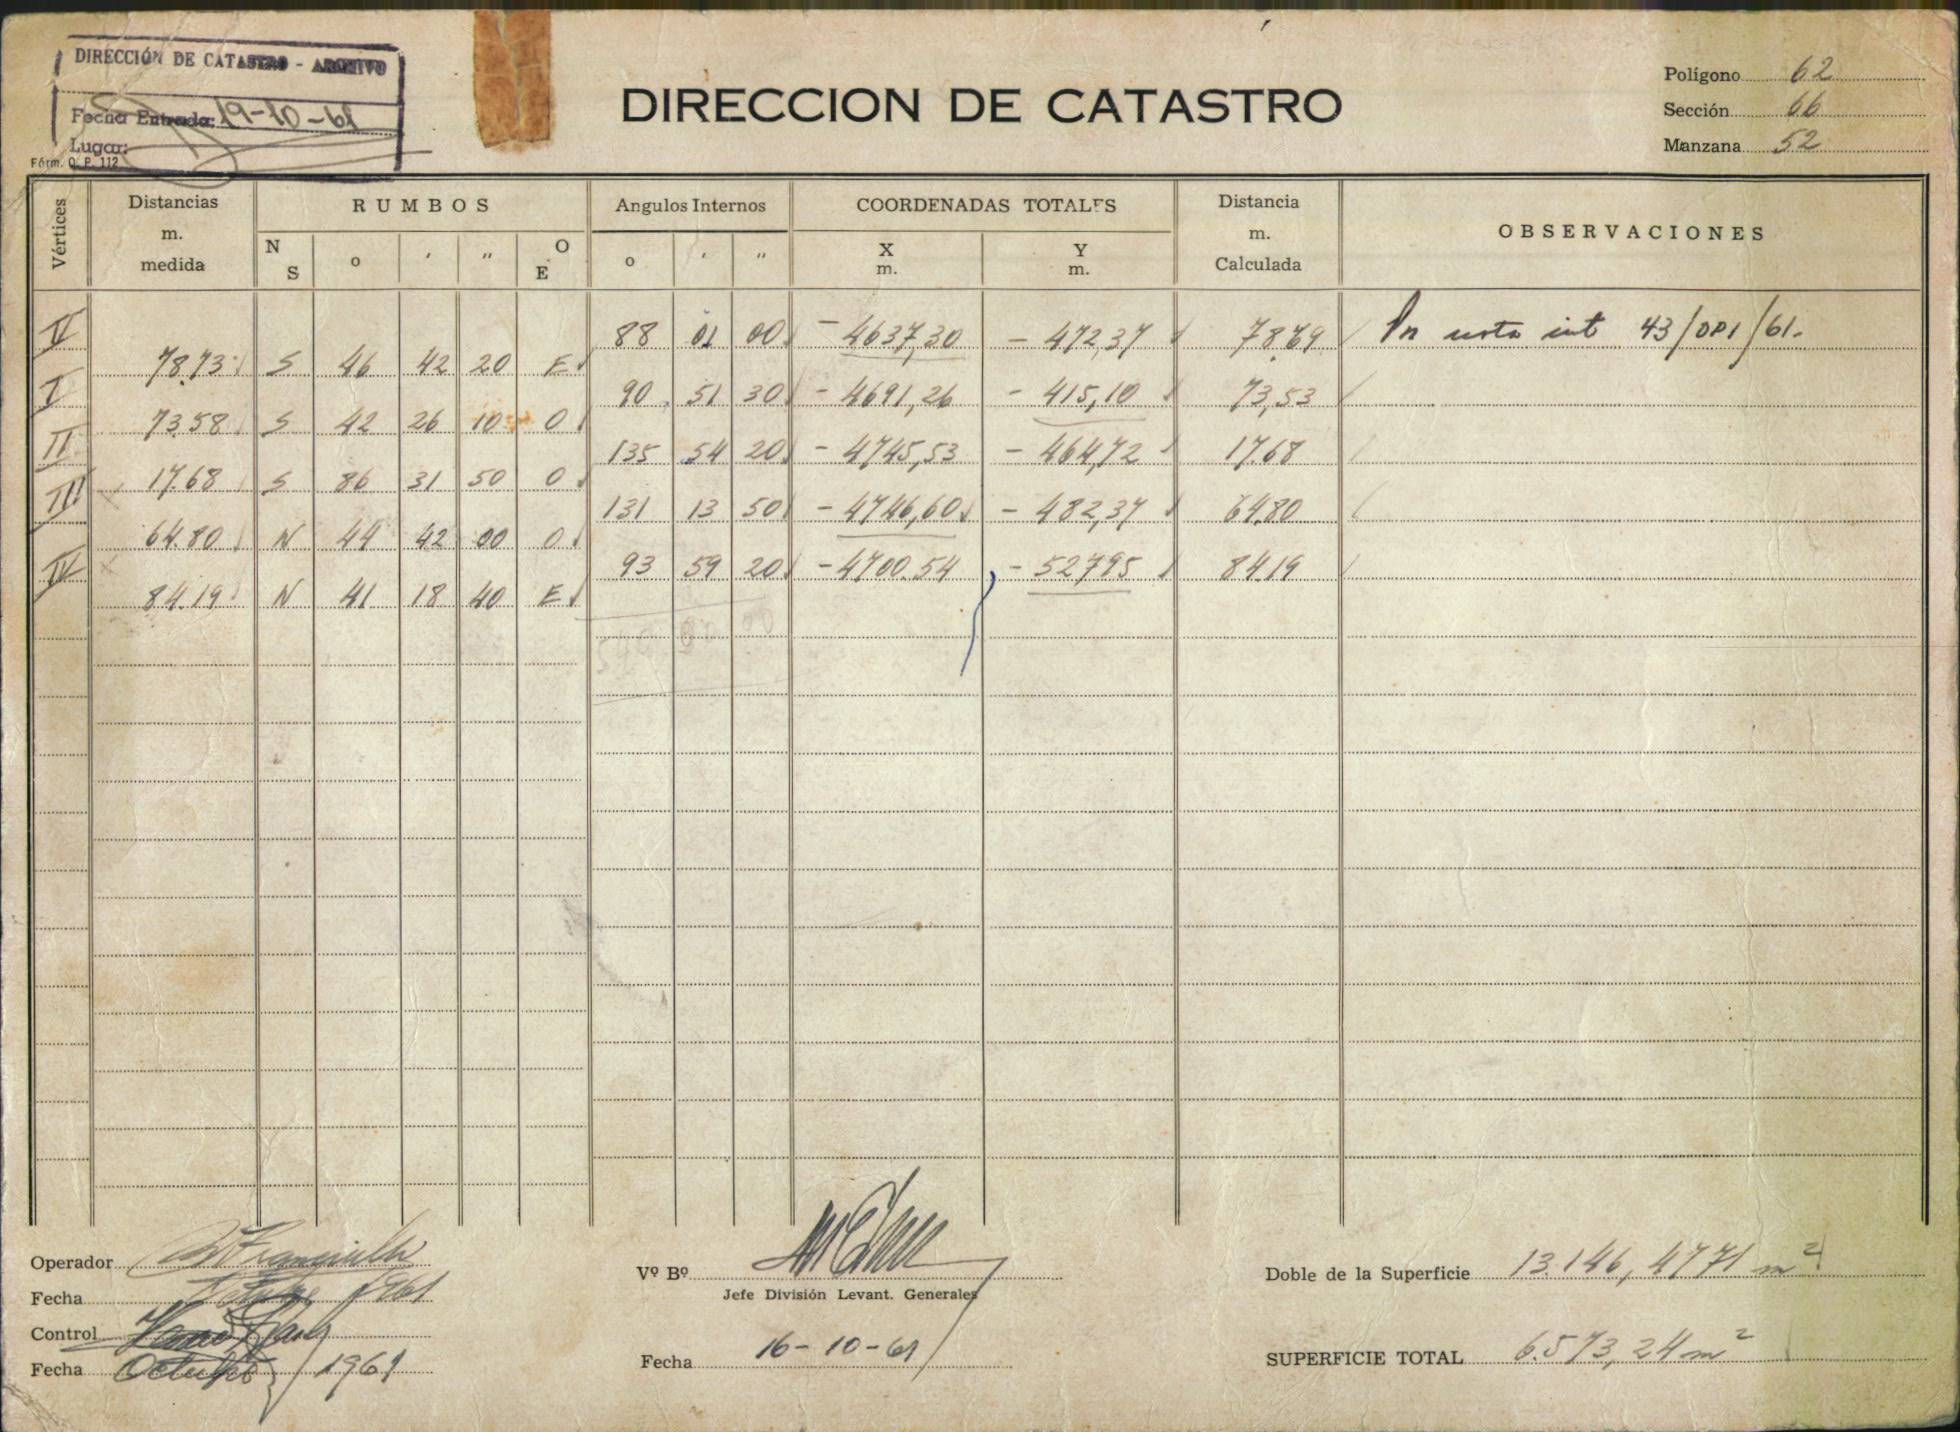 DIRECCIÓN DE CATASTRO - ARCHIVO
Fecha Entrada: 19-10-61
Lugar:
Fórm. O. P. 112
DIRECCION DE CATASTRO
Polígono 62
Sección 66
Manzana 52
Vértices Distancias m. medida RUMBOS Angulos Internos COORDENADAS TOTALES Distancia m. Calculada OBSERVACIONES
N S o ' " O E o ' " X m. Y m.
V 88 01 00 - 4637,30 - 472,37 78.69 43/DPI/61.
78.73 S 46 42 20 E
I 90 51 30 - 4691,26 - 415,10 73,53
73.58 S 42 26 10 O
II 135 54 20 - 4745,53 - 464,72 17.68
17.68 S 86 31 50 O
III 131 13 50 - 4746,60 - 482,37 64.80
64.80 N 44 42 00 O
IV 93 59 20 - 4700.54 - 527,95 84.19
84.19 N 41 18 40 E
540 00 00
Operador
Fecha 1961
Control
Fecha Octubre / 1961
Vº Bº
Jefe División Levant. Generales
Fecha 16-10-61
Doble de la Superficie 13.146,4771 m²
SUPERFICIE TOTAL 6.573,24 m²